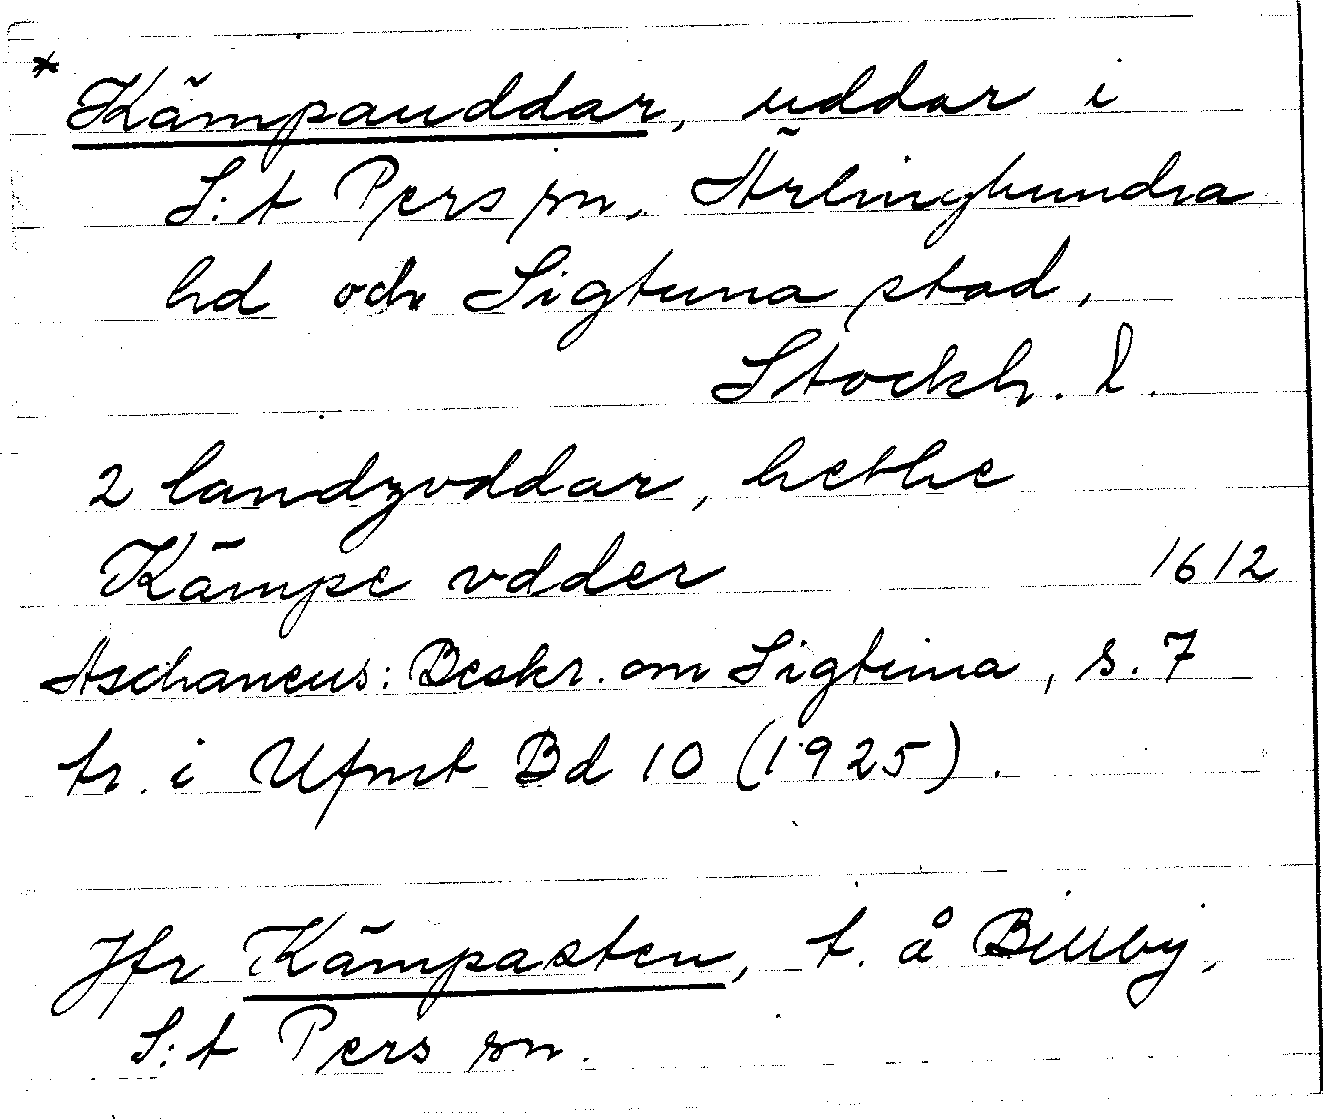 * Kämpauddar, uddar i
S:t Pers sn, Ärlinghundra
hd och Sigtuna stad,
Stockh. l.
2 landzvddar, hethe
Kämpe vdder 1612
Aschaneus: Beskr. om Sigtuna, s. 7
tr. i Ufmt Bd 10 (1925).
Jfr Kämpasten, t. å Billby,
S:t Pers sn.